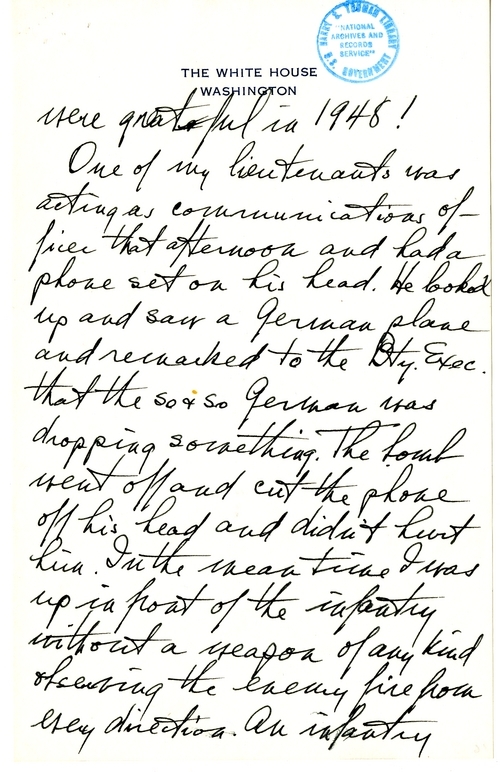 HARRY S. TRUMAN LIBRARY
"NATIONAL
ARCHIVES AND
RECORDS
SERVICE"
U.S. GOVERNMENT
THE WHITE HOUSE
WASHINGTON
were grateful in 1948!
One of my lieutenants was
acting as communications of-
ficer that afternoon and had a
phone set on his head. He looked
up and saw a German plane
and remarked to the Bty. Exec.
that the so & so German was
dropping something. The bomb
went off and cut the phone
off his head and didn't hurt
him. In the mean time I was
up in front of the infantry
without a weapon of any kind
observing the enemy fire from
every direction. An infantry